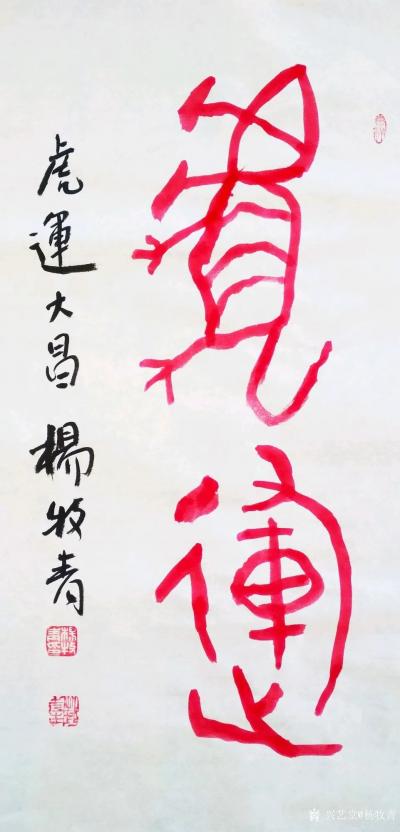 虎運
虎運大昌 楊牧青
兴艺堂@杨牧青